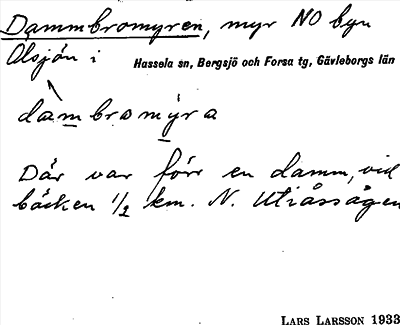 Dammbromyren, myr NO byn
Olsjön i Hassela sn, Bergsjö och Forsa tg, Gävleborgs län
dambromyra
Där var förr en damm, vid
bäcken 1/2 km. N. Utiåssågen
LARS LARSSON 1933